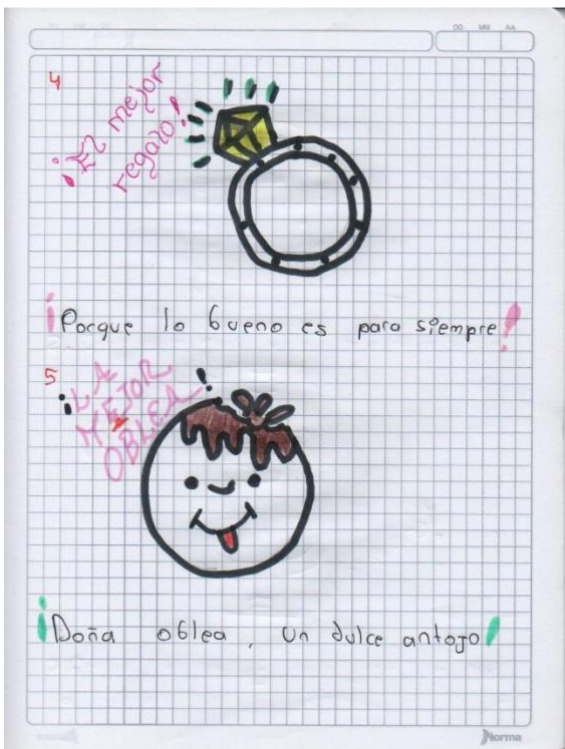 DD MM AA
4
¡El mejor
regalo!
¡Porque lo bueno es para siempre!
5
¡LA
MEJOR
OBLEA!
¡Doña oblea, un dulce antojo!
Norma